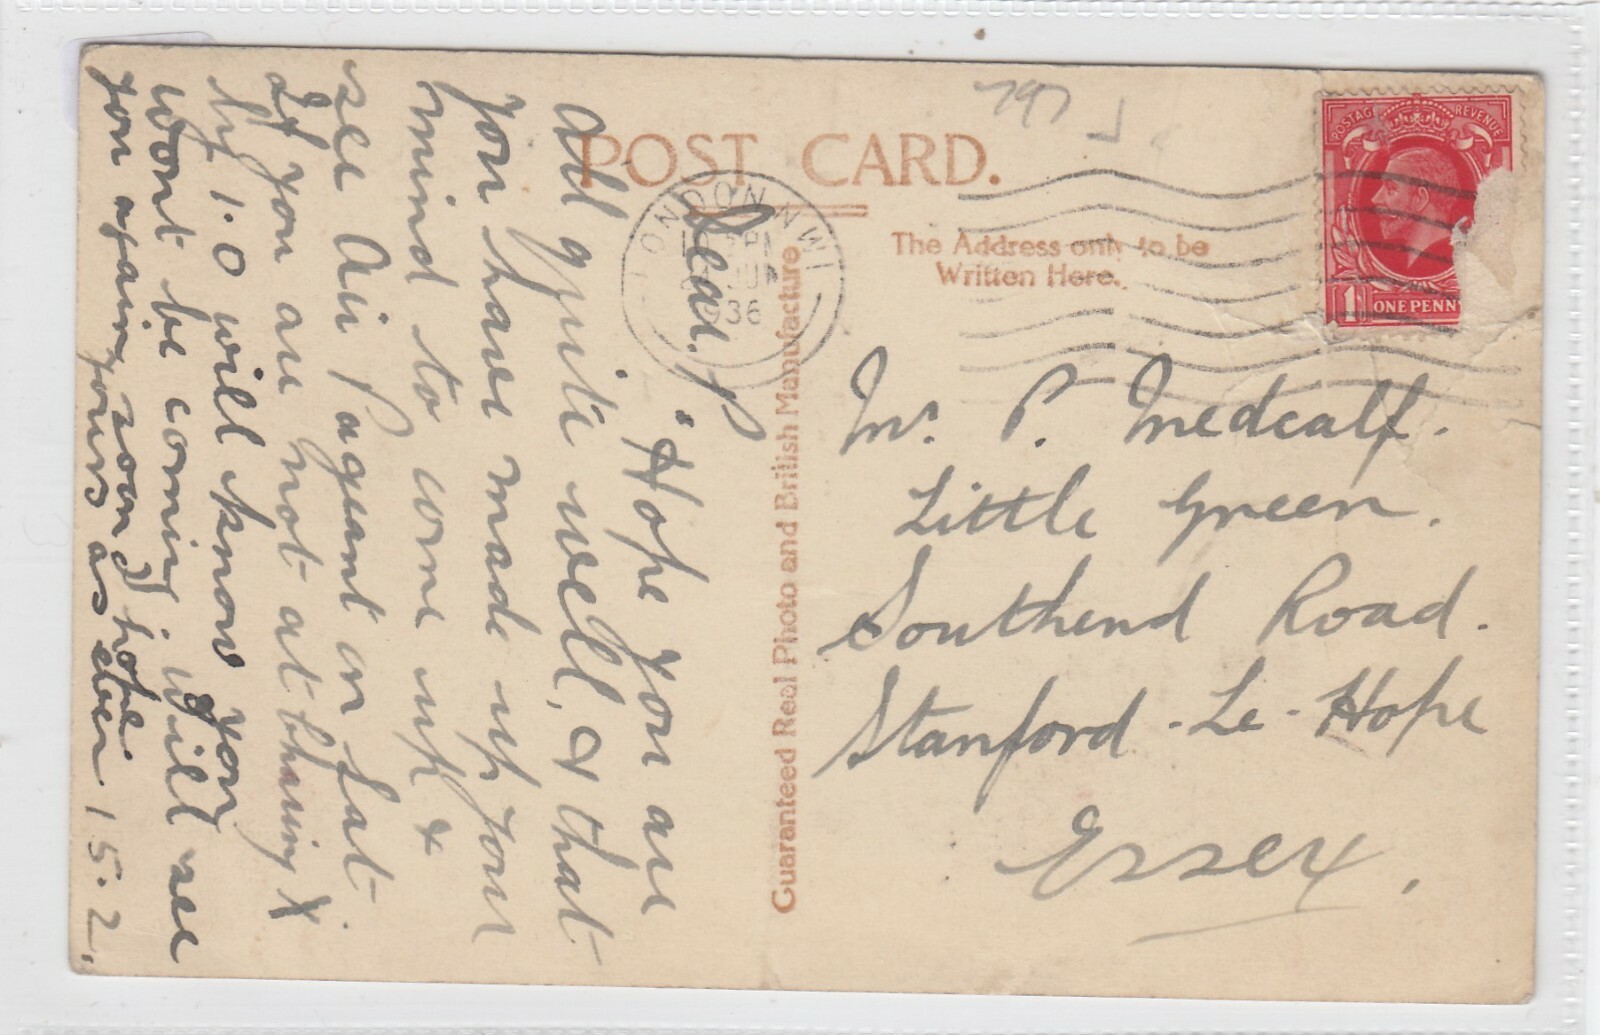 POST CARD.
The Address only to be
Written Here.
Guaranteed Real Photo and British Manufacture
LONDON N.W.1
1936
POSTAGE REVENUE
1 ONE PENNY
797
Mr. P. Medcalf.
Little Green.
Southend Road.
Stanford-Le-Hope
Essex.
Dear. P
"Hope you are
all quite well, & that
you have made up your
mind to come up &
see Air Pagent on Sat.
If you are not at
by 1.0 will know you
wont be coming, will see
you again soon I hope.
yours as ever 15.2.